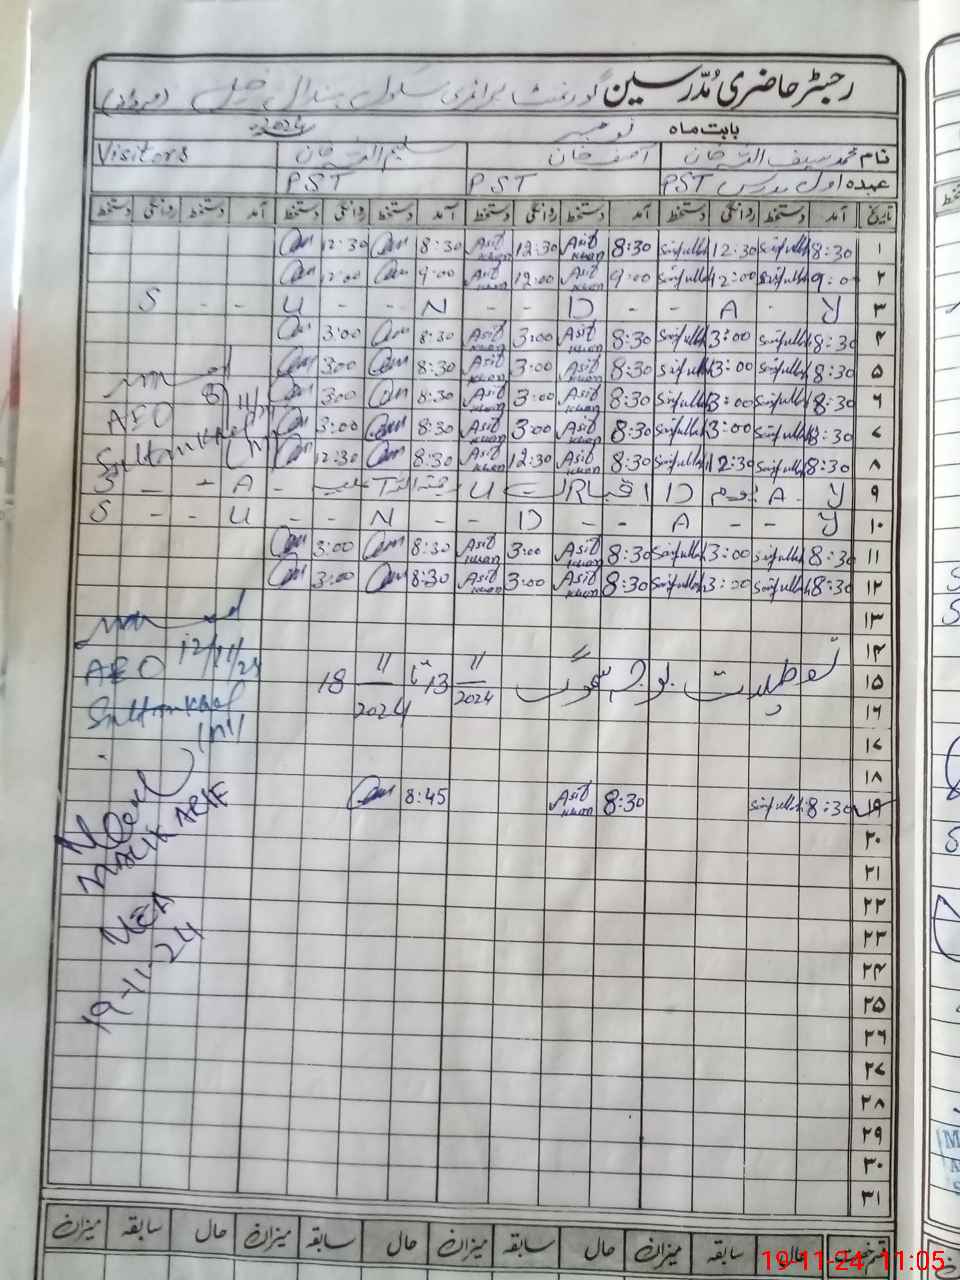 رجسٹر حاضری مُدّرسین گورنمنٹ پرائمری سکول
بابت ماہ نومبر 2024
نام محمد سیف اللہ خان آصف خان سلیم اللہ خان Visitors
عہدہ اول مدرس PST PST PST
تاریخ آمد دستخط روانگی دستخط آمد دستخط روانگی دستخط آمد دستخط روانگی دستخط آمد دستخط روانگی دستخط
۱ 8:30 Saifullah 12:30 Saifullah 8:30 Asif Khan 12:30 Asif Khan 8:30 12:30
۲ 9:00 Saifullah 12:00 Saifullah 9:00 Asif Khan 12:00 Asif Khan 9:00 12:00
۳ Y - A - - D - - N - - U - - S
۴ 8:30 Saifullah 3:00 Saifullah 8:30 Asif Khan 3:00 Asif Khan 8:30 3:00
۵ 8:30 Saifullah 3:00 Saifullah 8:30 Asif Khan 3:00 Asif Khan 8:30 3:00
۶ 8:30 Saifullah 3:00 Saifullah 8:30 Asif Khan 3:00 Asif Khan 8:30 3:00
AEO 8/11/24
۷ 8:30 Saifullah 3:00 Saifullah 8:30 Asif Khan 3:00 Asif Khan 8:30 3:00
۸ 8:30 Saifullah 12:30 Saifullah 8:30 Asif Khan 12:30 Asif Khan 8:30 12:30
۹ Y - A یوم D اقبال R U T - A - - S
۱۰ Y - - A - - D - - N - - U - - S
۱۱ 8:30 Saifullah 3:00 Saifullah 8:30 Asif Khan 3:00 Asif Khan 8:30 3:00
۱۲ 8:30 Saifullah 3:00 Saifullah 8:30 Asif Khan 3:00 Asif Khan 8:30 3:00
۱۳
۱۴
AEO 12/11/24
۱۵ تعطیلات بوجہ سموگ 13/11/2024 تا 18/11/2024
۱۶
۱۷
۱۸
۱۹ 8:30 Saifullah 8:30 Asif Khan 8:45
MALIK ARIF
۲۰
۲۱
۲۲
MEA
۲۳
19-11-24
۲۴
۲۵
۲۶
۲۷
۲۸
۲۹
۳۰
۳۱
حال سابقہ میزان حال سابقہ میزان حال سابقہ میزان حال سابقہ میزان
19-11-24 11:05